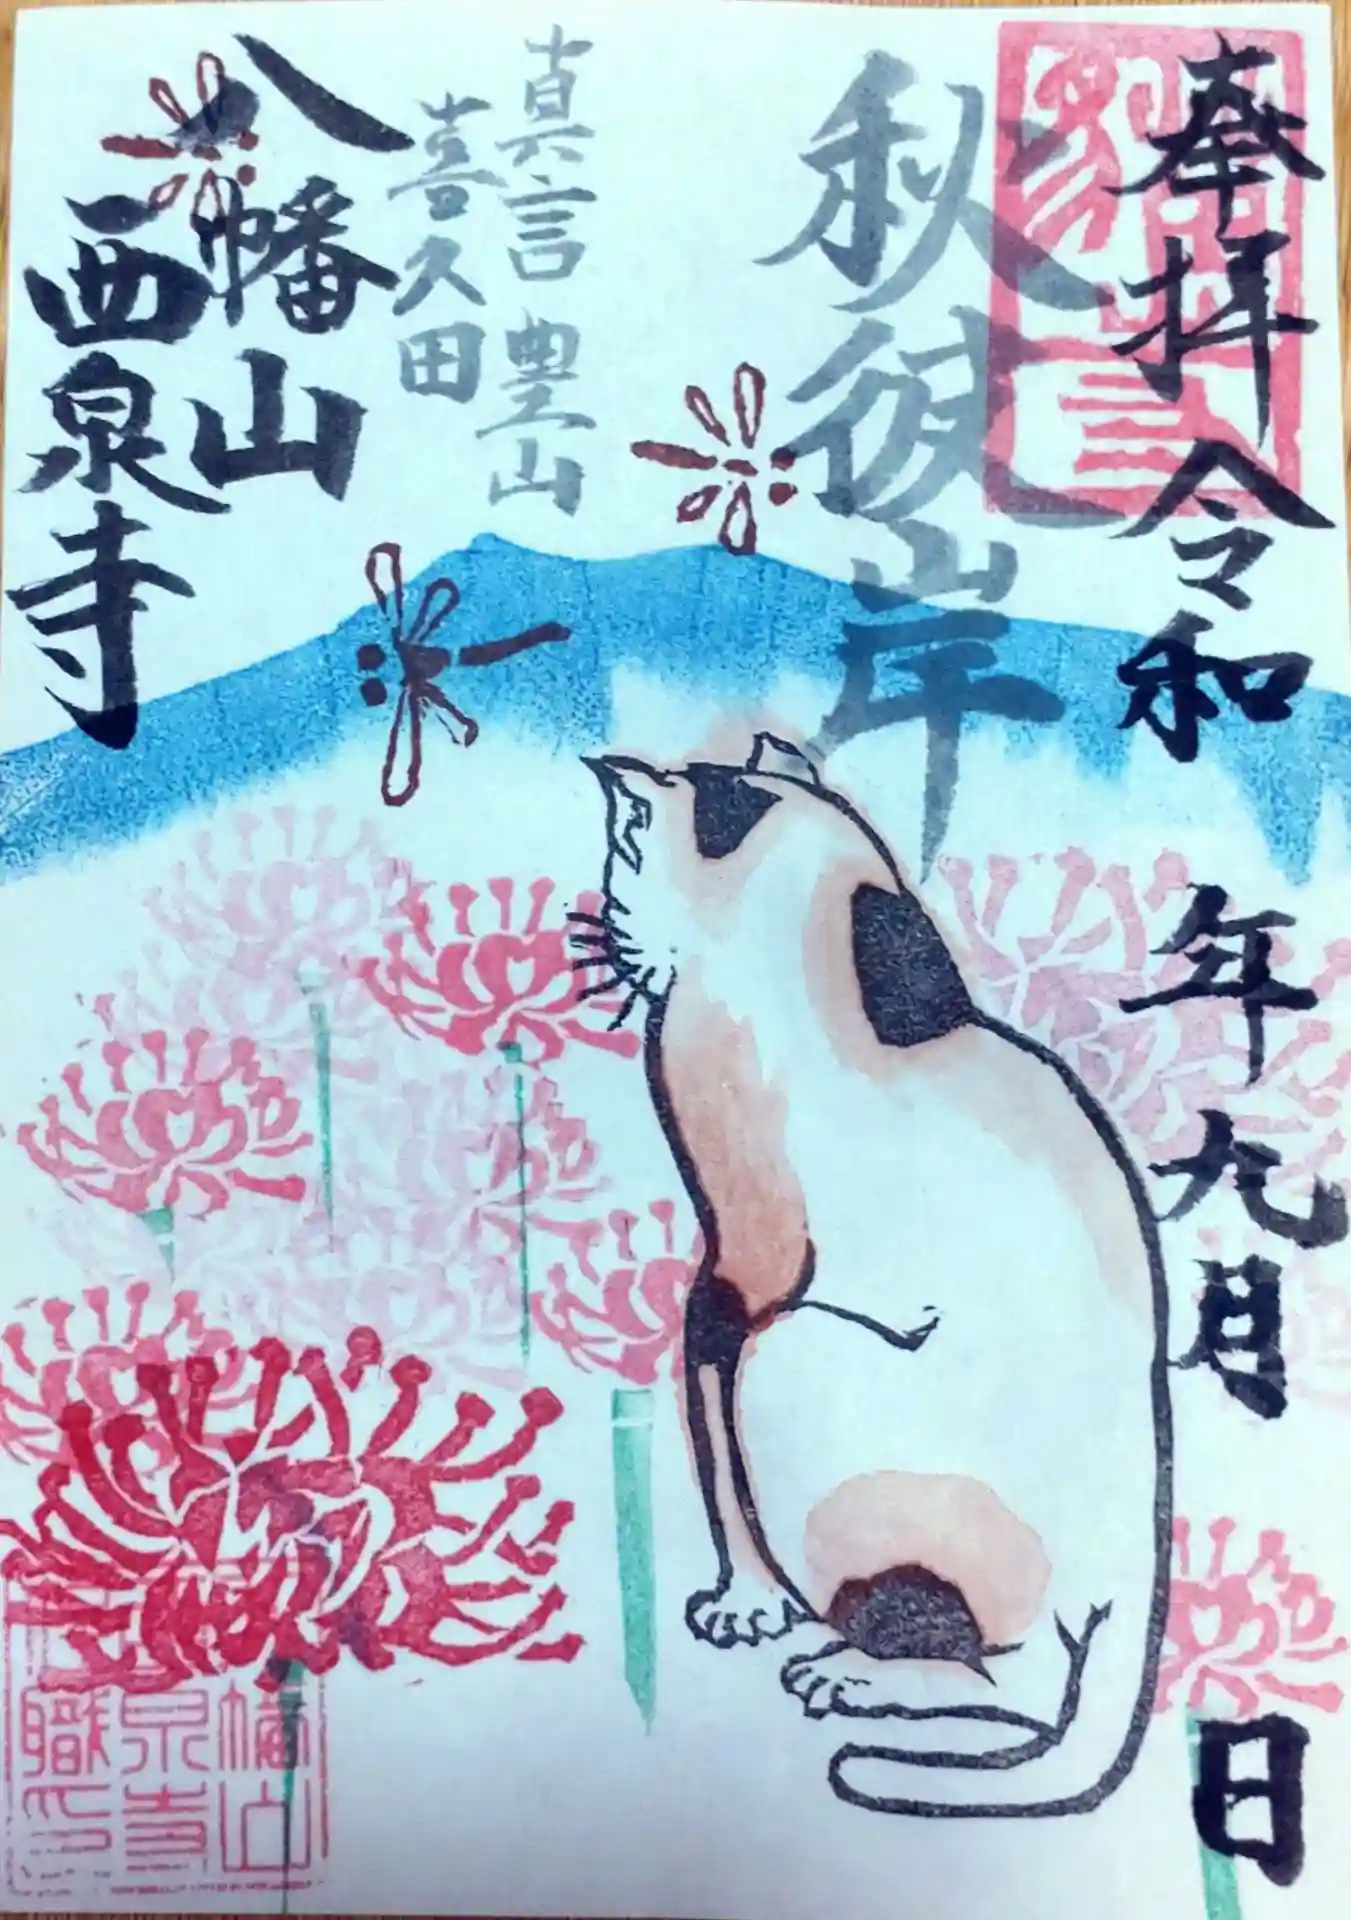 奉拝 令和 年九月 日
秋彼岸
真言豊山
喜久田
八幡山
西泉寺